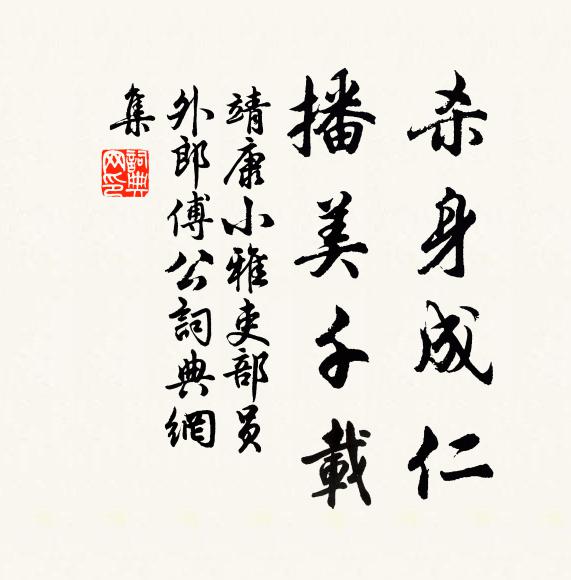 杀身成仁
播美千載
靖康小雅吏部员
外郎傅公詞典網
集
詞典
网印